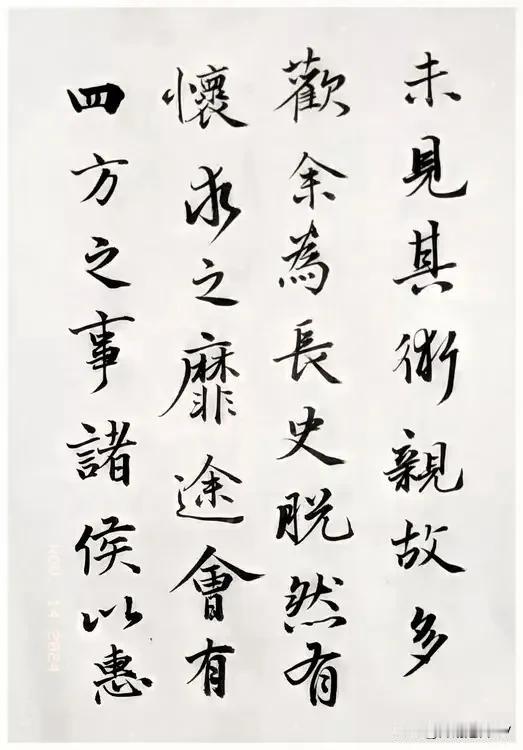 未見其術親故多
歡余為長史脫然有
懷求之靡途會有
四方之事諸侯以惠
NOV 14 2024